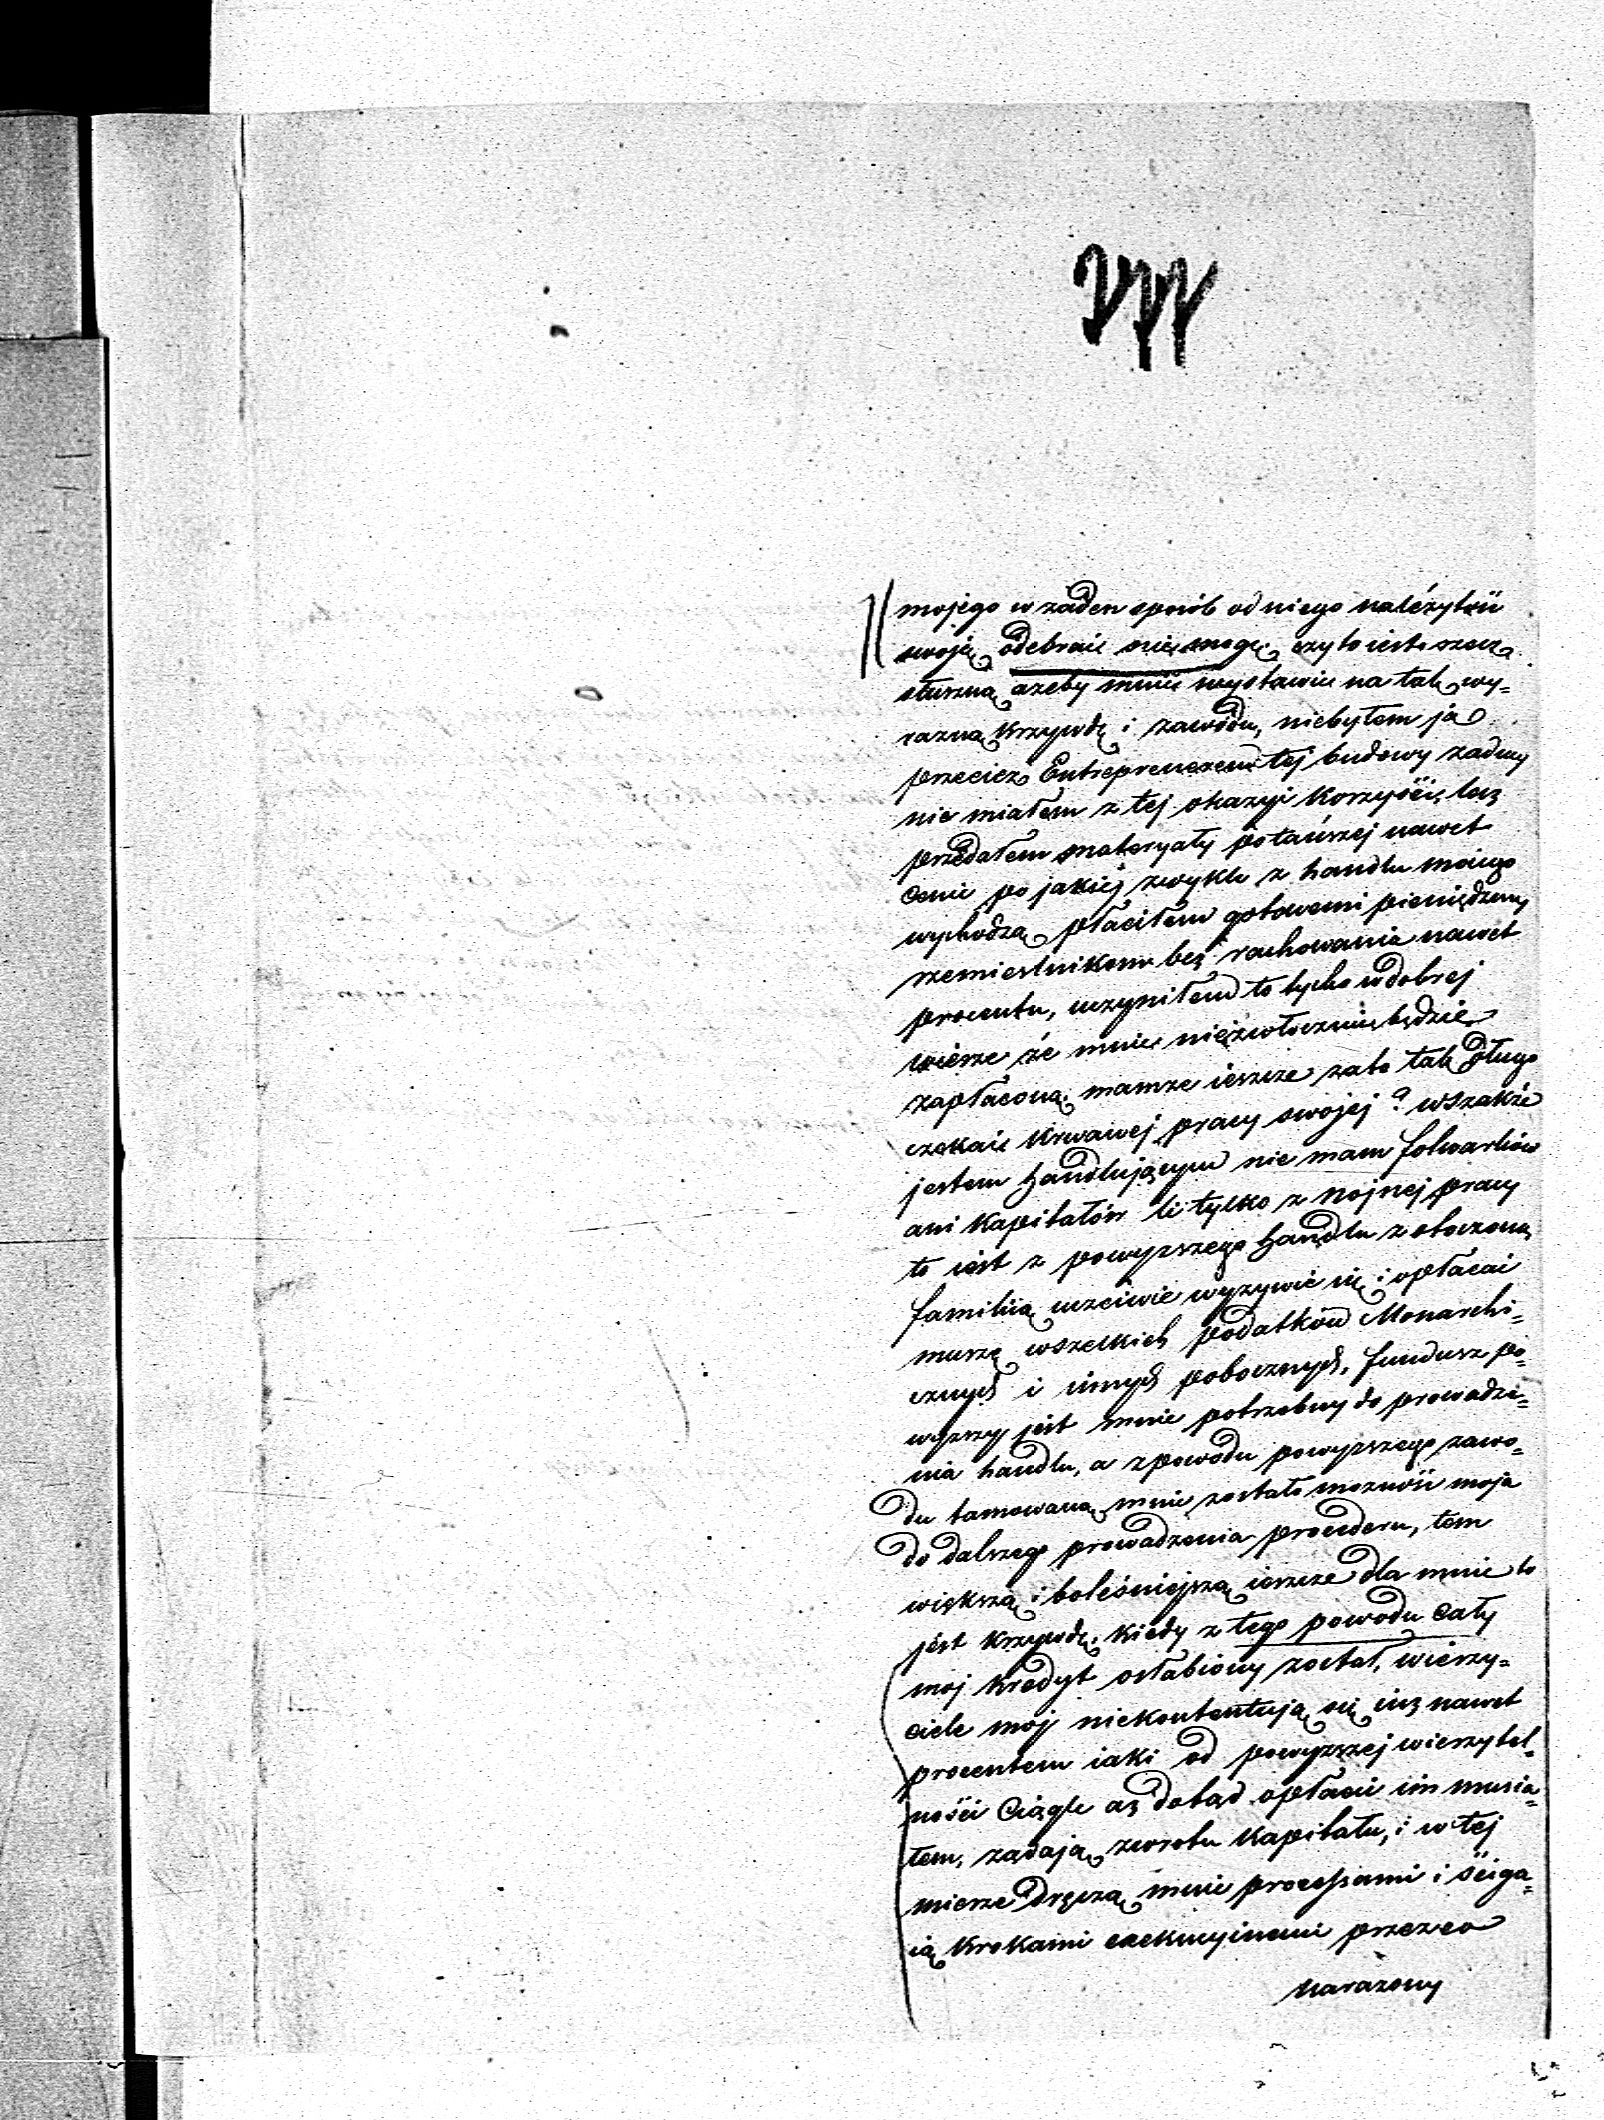 mojego w zaden sposób od niego należytości
swoją odebrać nie mogę. czy to iest rzecz
słuszną azeby mnie wystawić na tak wy=
razną krzywdę i zawodu, niebyłem ja
przeciez Entreprenerem tej budowy zadney
nie miałem z tej okazyi korzyści, lecz
przedałem materyały potańszej nawet
cenie po jakiej zwykle z handlu moiego
wychodzą płaciłem gotowemi pieniędzmy
rzemieslnikom bez rachowania nawet
procentu, uczyniłem to tylko w dobrej
wierze że mnie niezwłocznie będzie
zapłacona, mamze ieszcze zato tak długo
czekać krwawej pracy swojej? wszakże
jestem handlującym nie mam folwarków
ani kapitałów li tylko z znojnej pracy
to iest z powyzszego handlu z obszerną
familiią uczciwie wyzywić się i opłacać
muszę wszelkich podatków Monarchi=
cznych i innych pobocznych, fundusz po=
wyzszy jest mnie potrzebny do prowadze=
nia handlu, a z powodu powyzszego zawo=
du tamowaną mnie zostało mozność moja
do dalszego prowadzenia procederu, tem
większą i boleśniejszą ieszcze dla mnie to
jest krzywdę. kiedy z tego powodu cały
moj kredyt osłabiony został, wierzy=
ciele moj niekontentują się iuz nawet
procentem iaki od powyzszej wierzytel=
ności ciągle az dotąd opłacić im musia=
łem, ządają zwrotu kapitału, i w tej
mierze dręczą mnie processami i ściga=
ią krokami exekucyinemi przez co
narazony